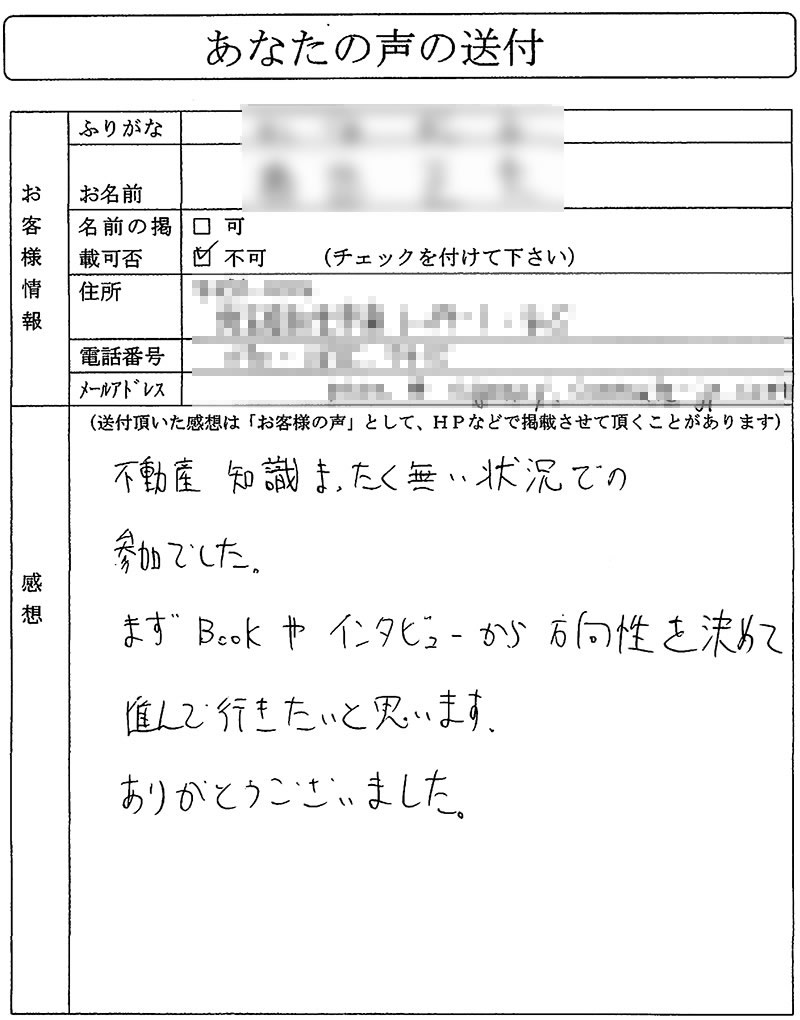 あなたの声の送付
お客様情報
ふりがな
お名前
名前の掲載可否
□ 可
☑ 不可 (チェックを付けて下さい)
住所
電話番号
ﾒｰﾙｱﾄﾞﾚｽ
感想
(送付頂いた感想は「お客様の声」として、HPなどで掲載させて頂くことがあります)
不動産 知識まったく無い状況での
参加でした。
まず Book や インタビューから 方向性を決めて
進んで行きたいと思います。
ありがとうございました。